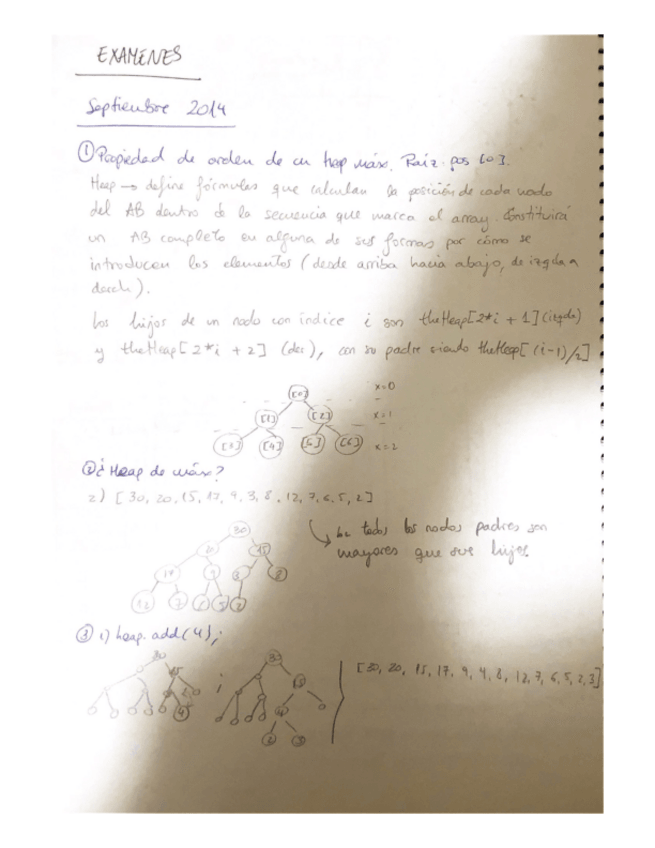 EXAMENES
Septiembre 2014
① Propiedad de orden de un heap máx. Raíz pos [0].
Heap → define fórmulas que calculan la posición de cada nodo
del AB dentro de la secuencia que marca el array. Constituirá
un AB completo en alguna de sus formas por cómo se
introducen los elementos (desde arriba hacia abajo, de izqda a
derch).
Los hijos de un nodo con índice i son theHeap[2*i + 1] (izqda)
y theHeap[2*i + 2] (der), con su padre siendo theHeap[(i-1)/2]
[0] x=0
[1] [2] x=1
[3] [4] [5] [6] x=2
② ¿Heap de máx?
2) [30, 20, 15, 17, 9, 3, 8, 12, 7, 6, 5, 2]
todos los nodos padres son
mayores que sus hijos.
30
20 15
17 9 3 8
12 7 6 5 2
③ 1) heap.add(4);
[30, 20, 15, 17, 9, 4, 8, 12, 7, 6, 5, 2, 3]
30 30
15 15
4 4
2 3